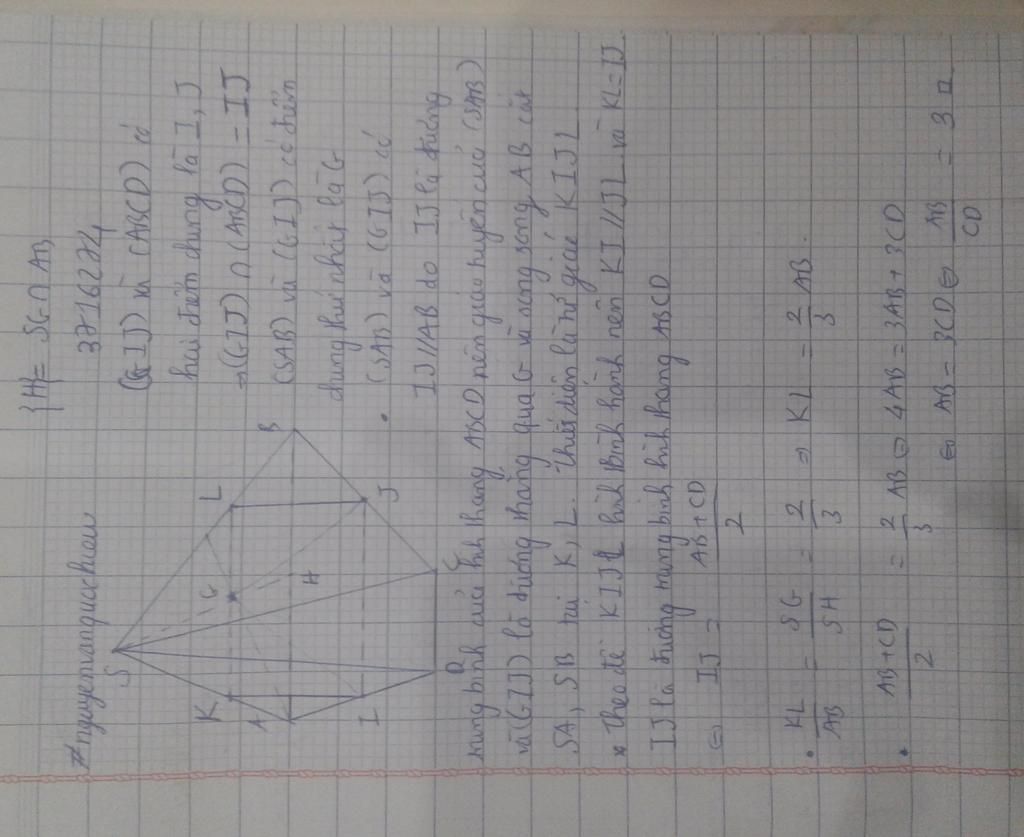 #nguyenvanquochieu
{H} = SG ∩ AB
37162724
(GIJ) và (ABCD) có
hai điểm chung là I, J
⇒ (GIJ) ∩ (ABCD) = IJ
(SAB) và (GIJ) có điểm
chung thứ nhất là G
• (SAB) và (GIJ) có
IJ // AB do IJ là đường
S
K
A
I
D
G
H
L
B
J
C
trung bình của hình thang ABCD nên giao tuyến của (SAB)
và (GIJ) là đường thẳng qua G và song song AB cắt
SA, SB tại K, L. Thiết diện là tứ giác KIJL
* Theo đề KIJL hình Bình hành nên KI // JL và KL = IJ
IJ là đường trung bình hình thang ABCD
⇔ IJ = AB + CD / 2
• KL / AB = SG / SH = 2 / 3 ⇒ KL = 2 / 3 AB.
• AB + CD / 2 = 2 / 3 AB ⇔ 4AB = 3AB + 3CD
⇔ AB = 3CD ⇔ AB / CD = 3